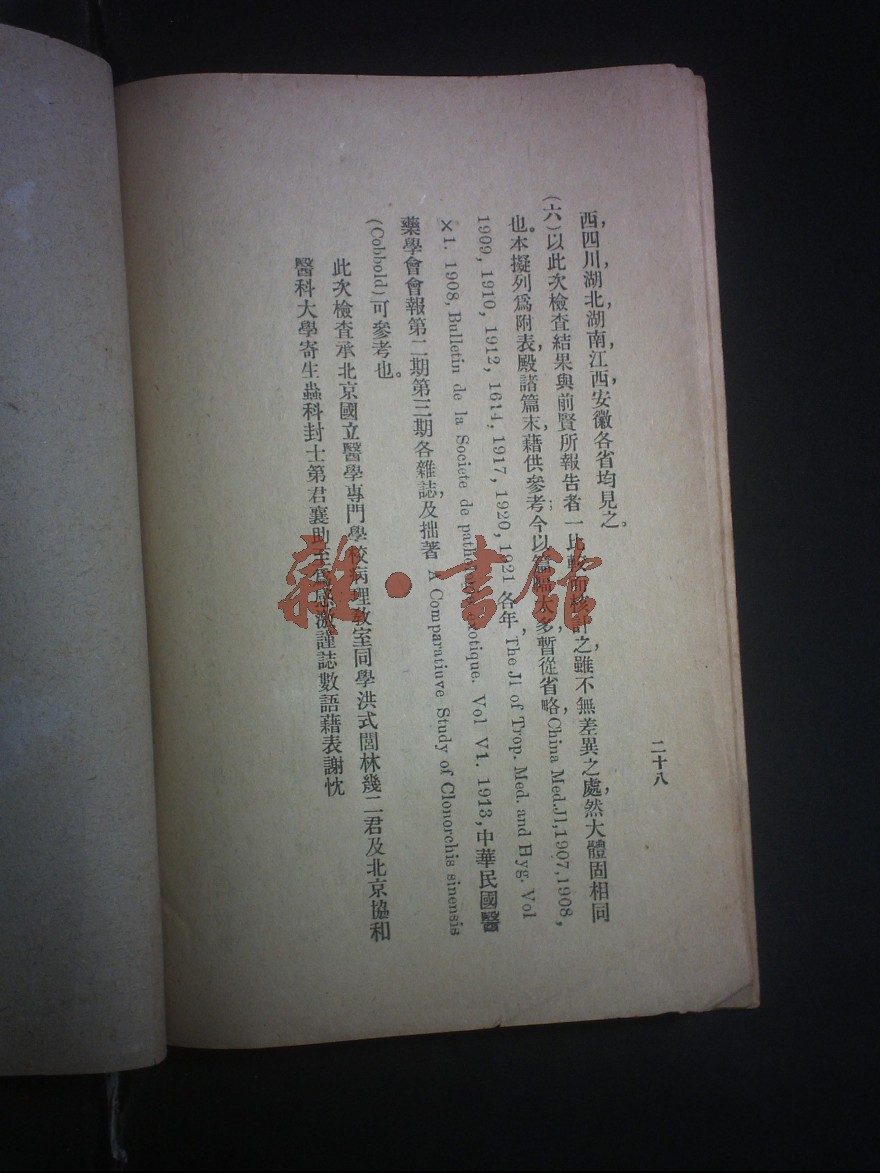 西，四川，湖北，湖南，江西，安徽各省均見之。
(六)以此次檢查結果與前賢所報告者，一一比較而核計之，雖不無差異之處，然大體固相同
也。本擬列爲附表，殿諸篇末，藉供參考，今以篇幅太多，暫從省略，China Med.Jl, 1907, 1908,
1909, 1910, 1912, 1614, 1917, 1920, 1921各年，The Jl of Trop. Med. and Hyg. Vol
X1. 1908, Bulletin de la Societe de pathologie exotique. Vol V1. 1913, 中華民國醫
藥學會會報第二期第三期各雜誌，及拙著 A Comparatiuve Study of Clonorchis sinensis
(Cobbold)可參考也。
此次檢查承北京國立醫學專門學校病理教室同學洪式閭林幾二君及北京協和
醫科大學寄生蟲科封士第君襄助至爲感激謹誌數語藉表謝忱
二十八
雜·書館